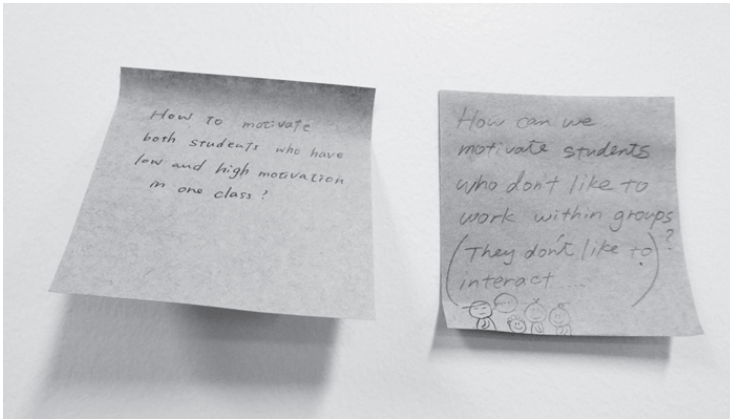 How to motivate
both students who have
low and high motivation
in one class?
How can we
motivate students
who don't like to
work within groups
?
(They don't like to)
interact ....